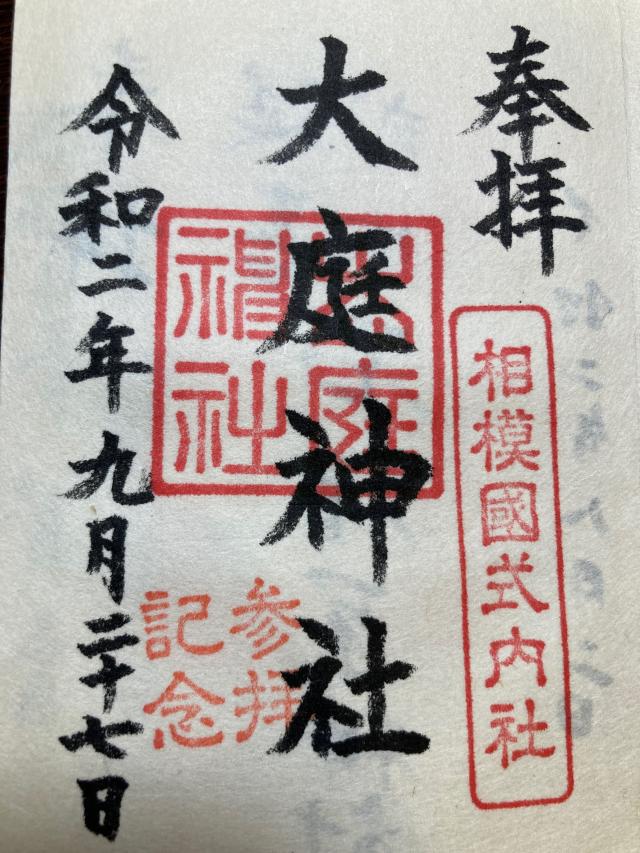 奉拝
相模國式内社
大庭神社
大庭神社
参拝記念
令和二年九月二十七日